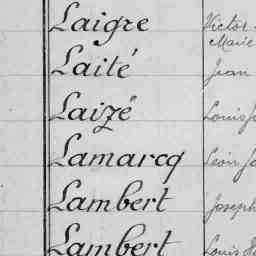 Laigre Victor
Marie
Laité Jean
Laizé Louis J
Lamarcq Léon J
Lambert Joseph
Lambert Louis